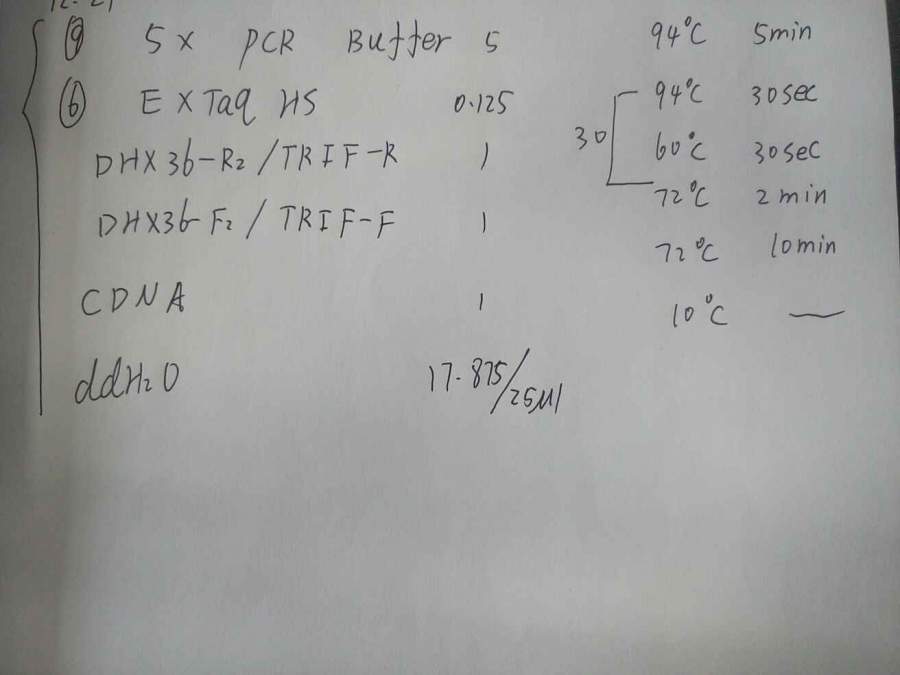 ⑨ 5× PCR Buffer 5
⑥ EXTaq HS 0.125
DHX36-R2/TRIF-R 1
DHX36-F2/TRIF-F 1
CDNA 1
ddH2O 17.875/25μl
94°C 5min
30
94°C 30sec
60°C 30sec
72°C 2min
72°C 10min
10°C —